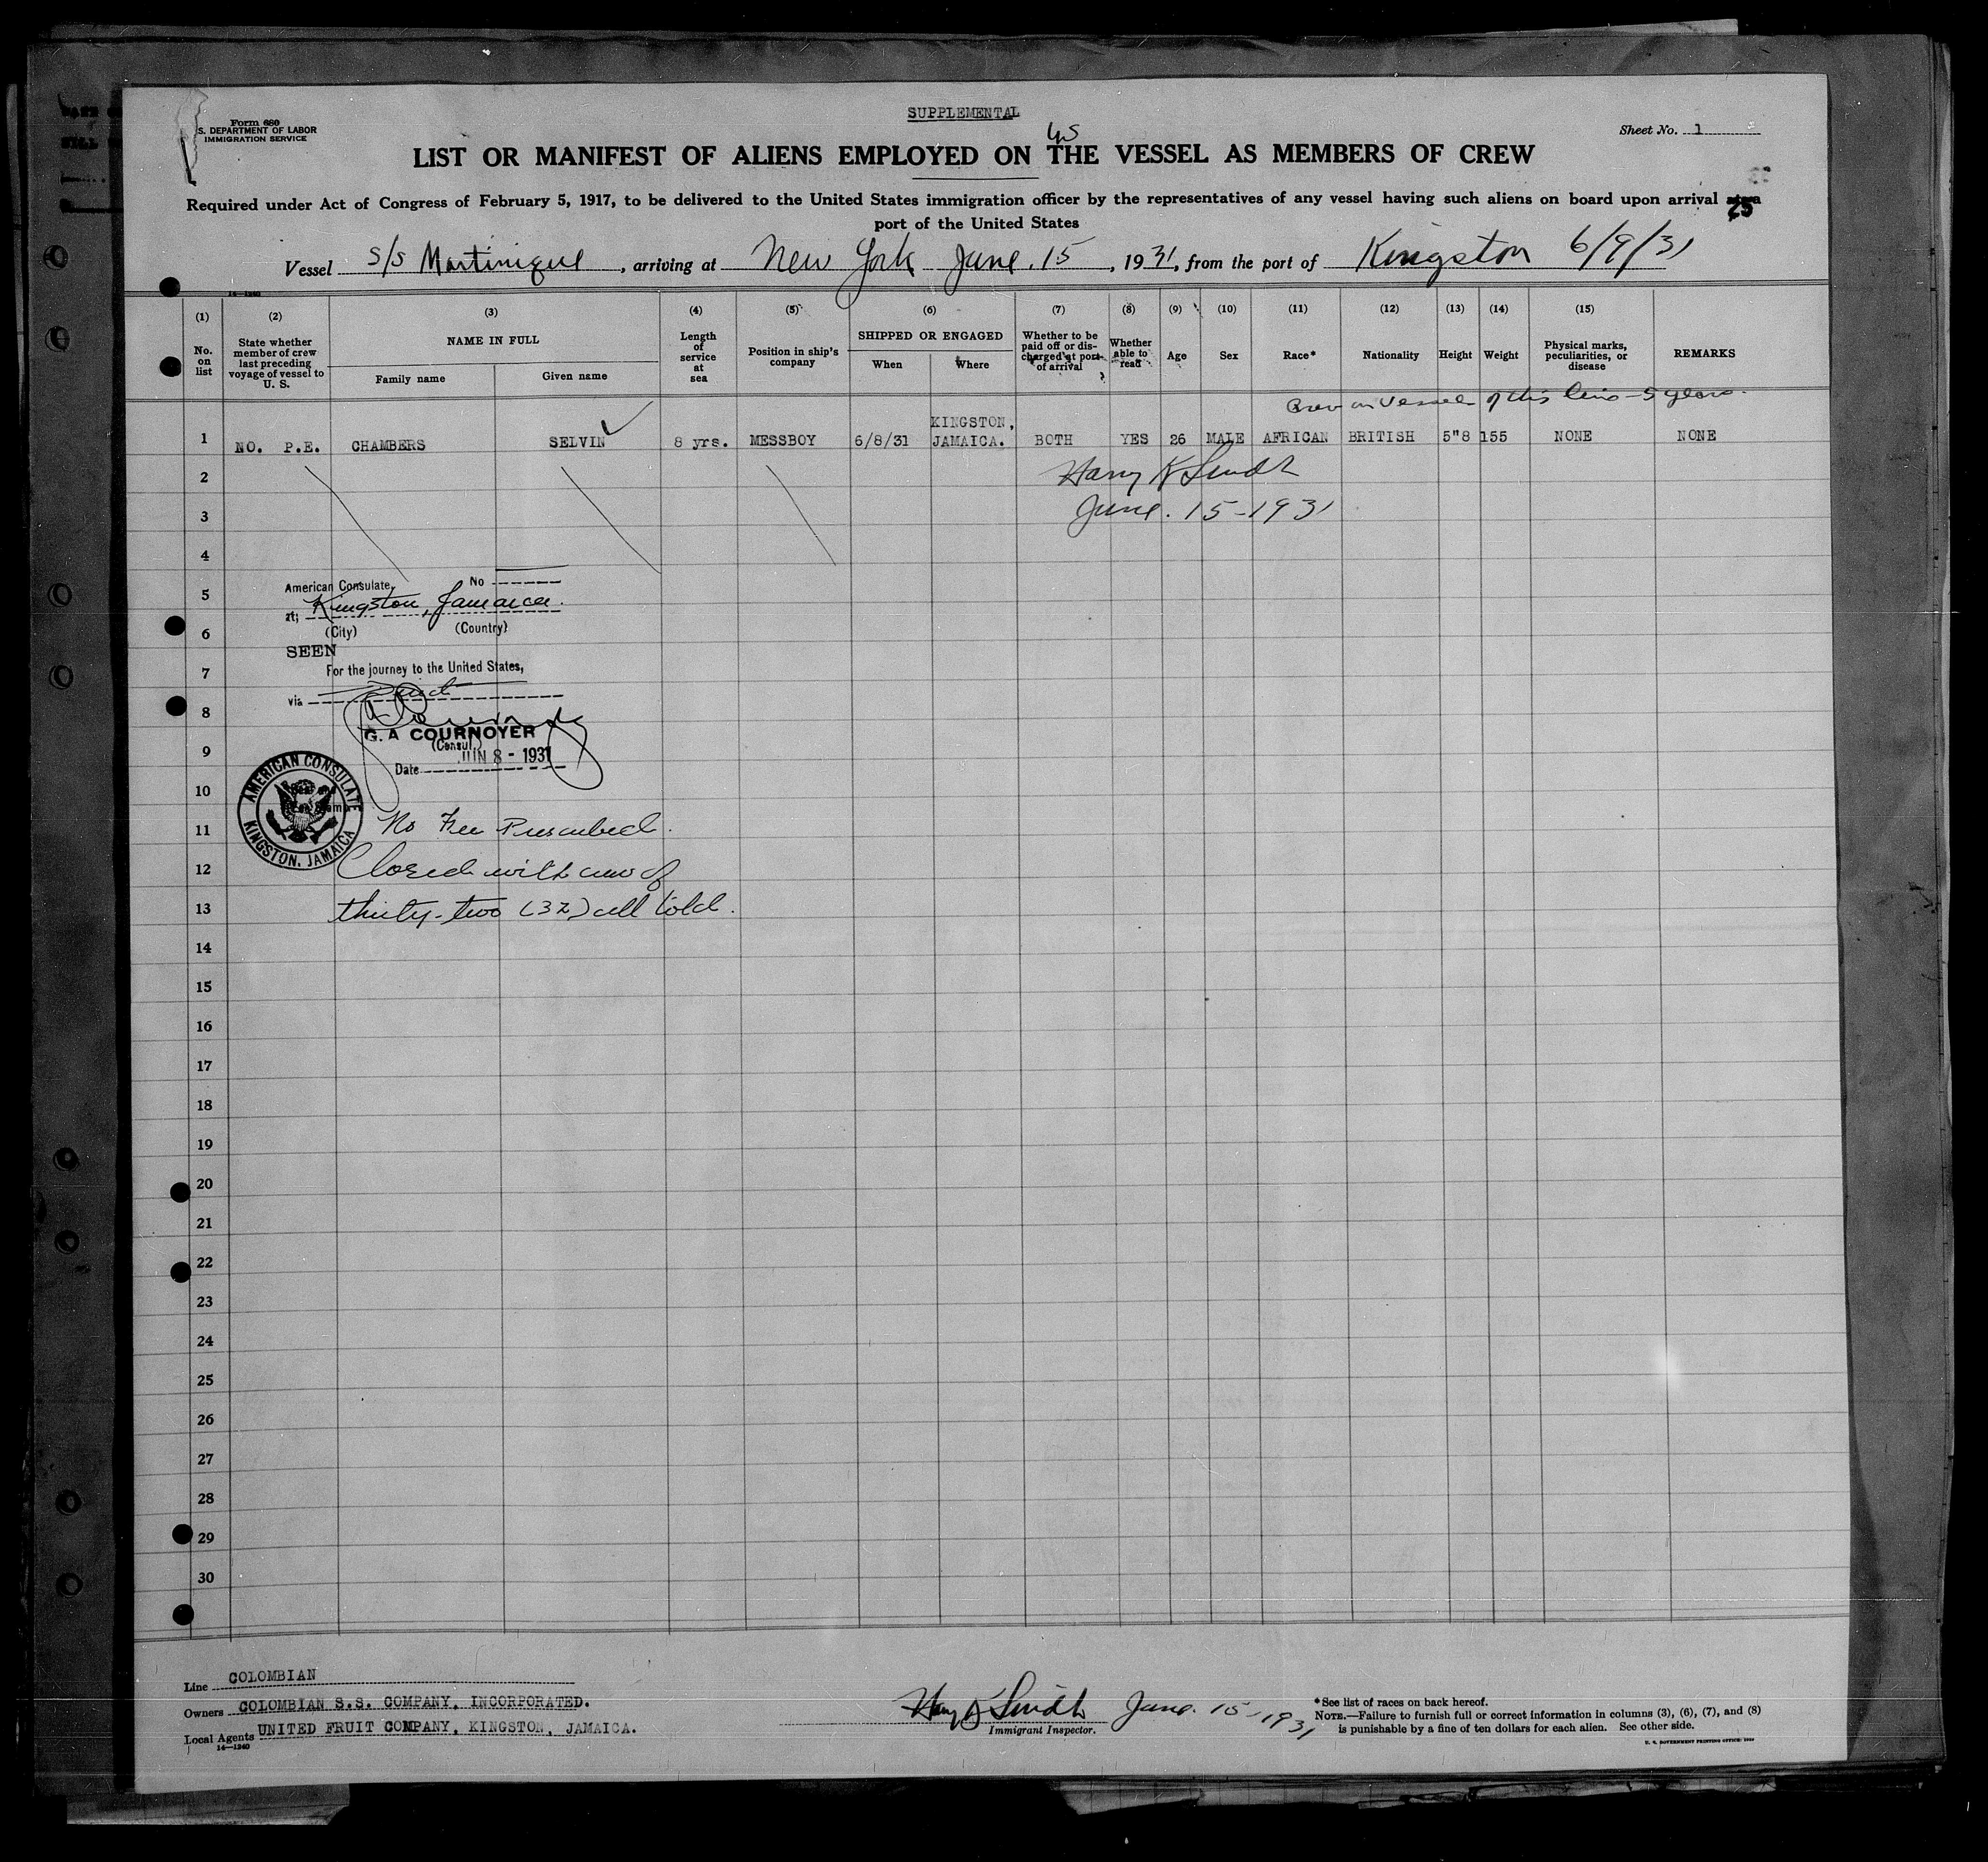 SUPPLEMENTAL
Form 680
S. DEPARTMENT OF LABOR
IMMIGRATION SERVICE
Sheet No. 1
LIST OR MANIFEST OF ALIENS EMPLOYED ON THE VESSEL AS MEMBERS OF CREW
Required under Act of Congress of February 5, 1917, to be delivered to the United States immigration officer by the representatives of any vessel having such aliens on board upon arrival at a
port of the United States
25
Vessel S/S Martinique, arriving at New York June. 15, 1931, from the port of Kingston 6/9/31
14—1240
(1) (2) (3) (4) (5) (6) (7) (8) (9) (10) (11) (12) (13) (14) (15)
No. on list
State whether member of crew last preceding voyage of vessel to U. S.
NAME IN FULL
Family name
Given name
Length of service at sea
Position in ship's company
SHIPPED OR ENGAGED
When
Where
Whether to be paid off or discharged at port of arrival
Whether able to read
Age
Sex
Race*
Nationality
Height
Weight
Physical marks, peculiarities, or disease
REMARKS
vessel of this line - 5 years.
1 NO. P.E. CHAMBERS SELVIN 8 yrs. MESSBOY 6/8/31 KINGSTON, JAMAICA. BOTH YES 26 MALE AFRICAN BRITISH 5"8 155 NONE NONE
2
Harry K
3
June. 15-1931
4
American Consulate, No
5
at; Kingston, Jamaica.
6
(City) (Country)
SEEN
7
For the journey to the United States,
via
8
G. A COURNOYER
(Consul.)
9
Date JUN 8 - 1931
AMERICAN CONSULATE
KINGSTON, JAMAICA
10
11
No Fee Prescribed.
12
Closed with crew of
13
thirty-two (32) all told.
14
15
16
17
18
19
20
21
22
23
24
25
26
27
28
29
30
Line COLOMBIAN
Owners COLOMBIAN S.S. COMPANY, INCORPORATED.
Local Agents UNITED FRUIT COMPANY, KINGSTON, JAMAICA.
14—1240
Harry K June. 15-1931
Immigrant Inspector.
*See list of races on back hereof.
NOTE.—Failure to furnish full or correct information in columns (3), (6), (7), and (8)
is punishable by a fine of ten dollars for each alien. See other side.
U. S. GOVERNMENT PRINTING OFFICE: